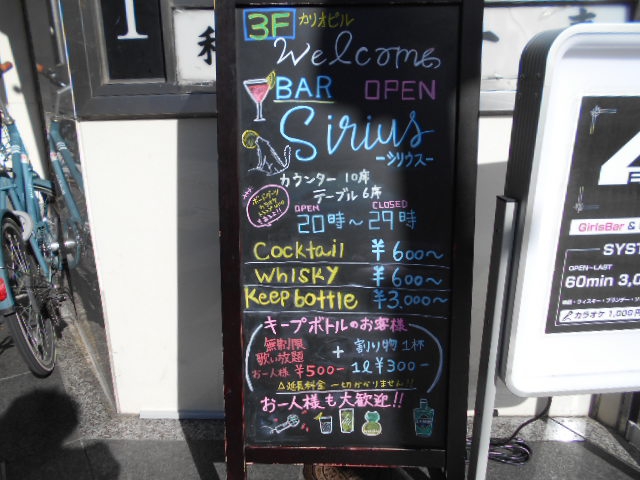 3F カリオビル
Welcome
BAR OPEN
Sirius
ーシリウスー
カウンター 10席
テーブル 6席
OPEN CLOSED
20時〜29時
Cocktail ¥600〜
Whisky ¥600〜
Keep bottle ¥3,000〜
キープボトルのお客様
無制限
歌い放題
お一人様 ¥500ー
+ 割り物 1杯
1ℓ ¥300ー
△延長料金 一切かかりません!!
お一人様も大歓迎!!
1
GirlsBar &
SYST
OPEN-LAST
60min 3,0
カラオケ 1,000円